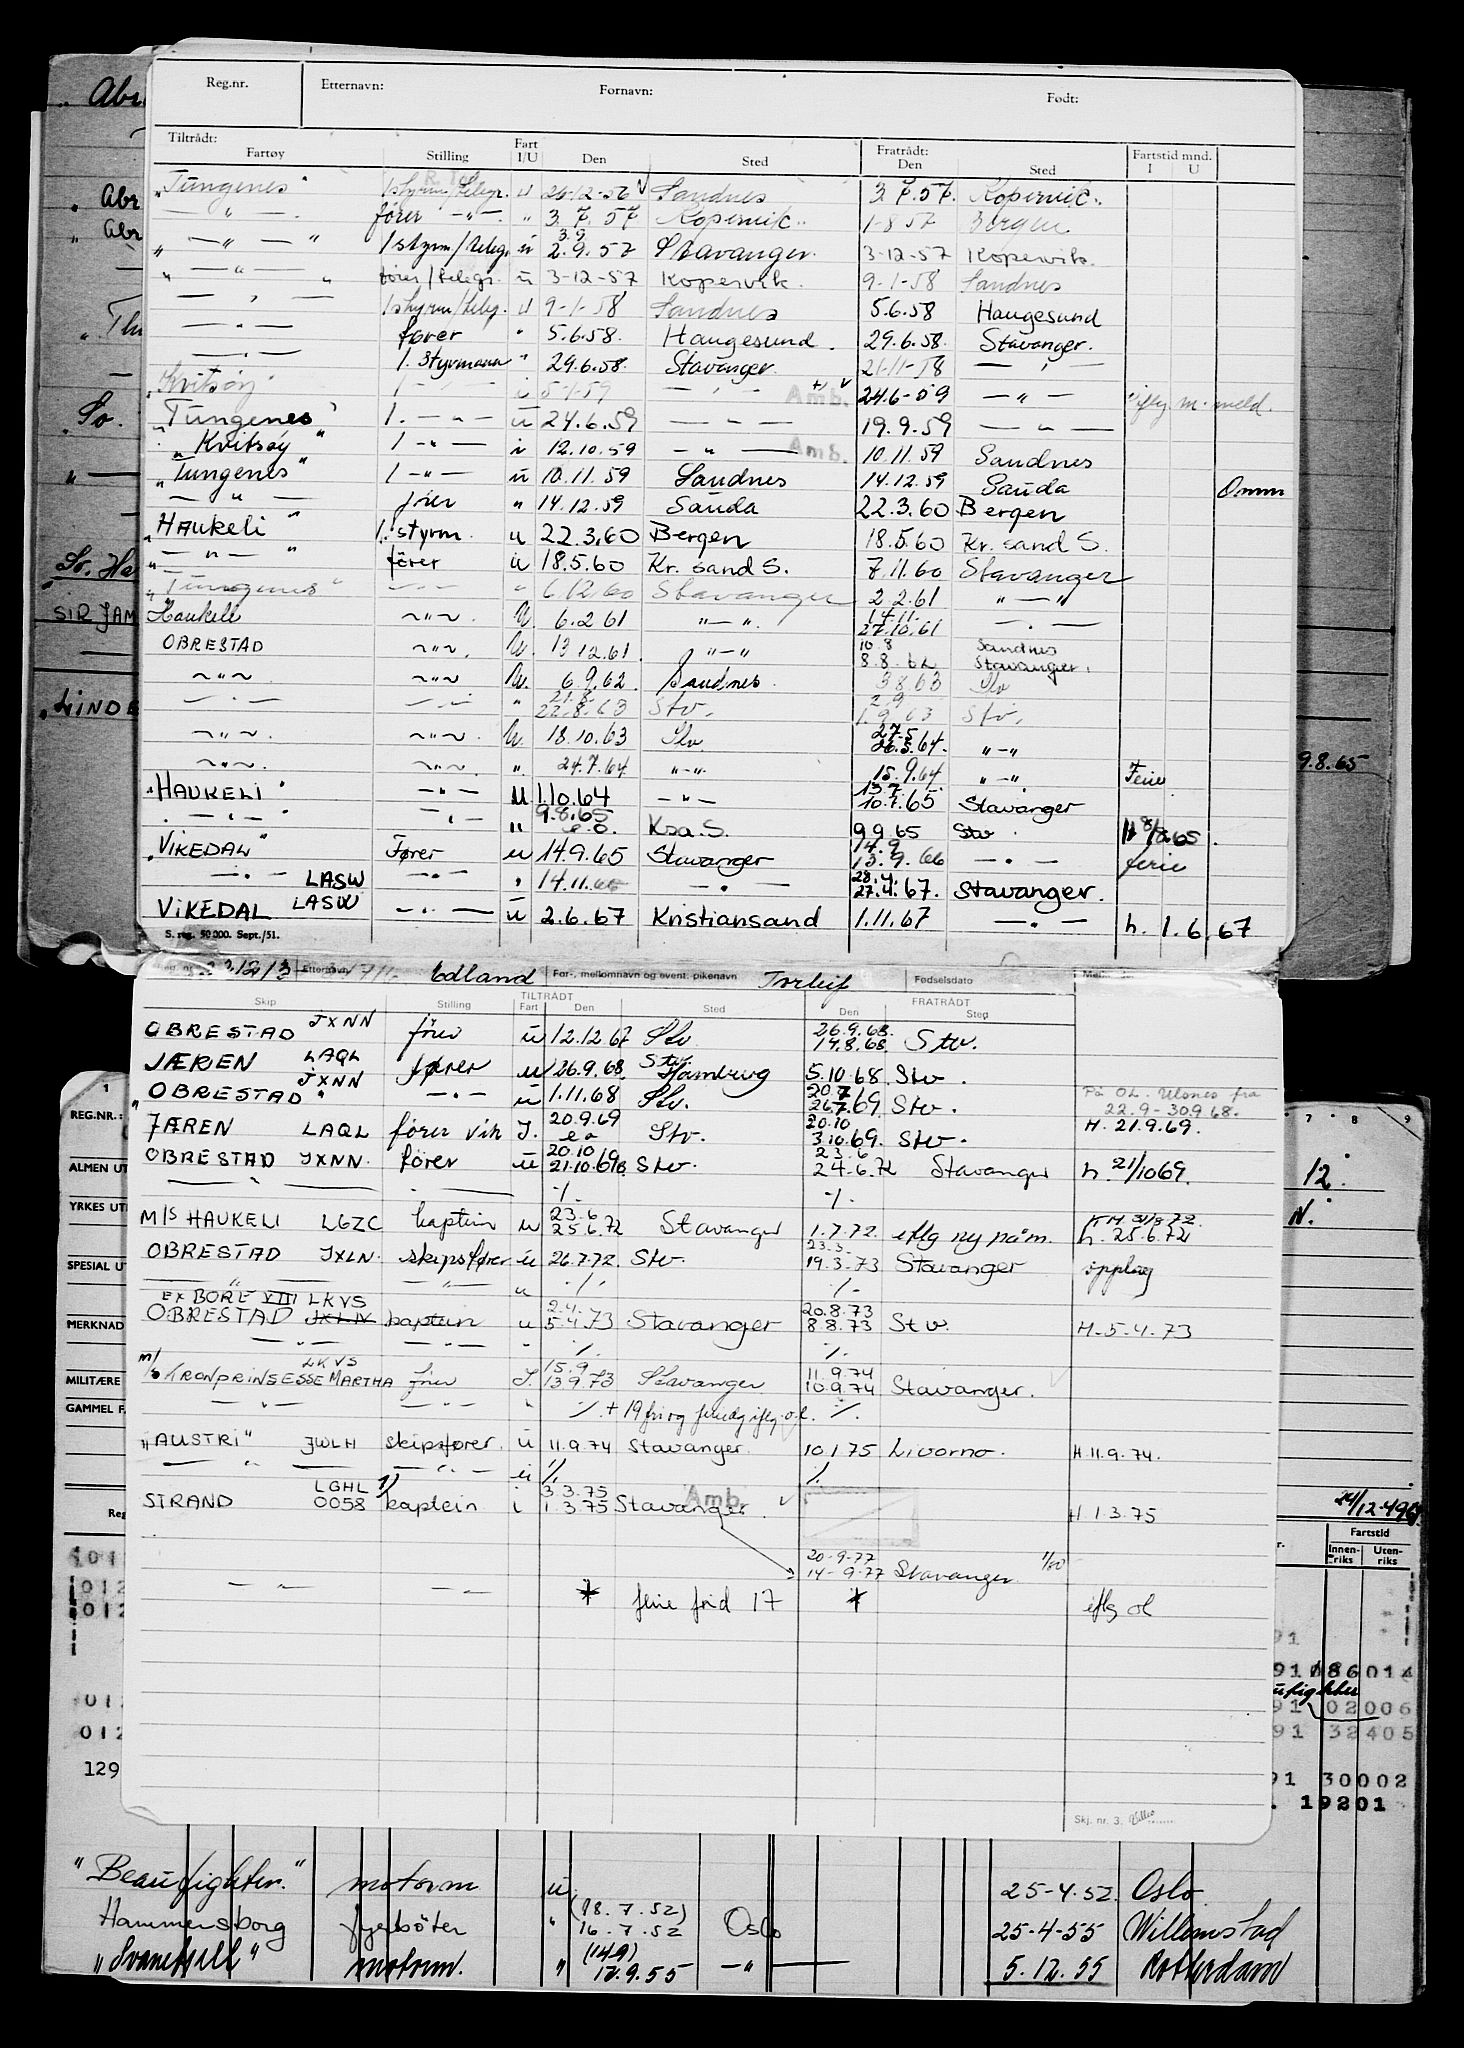 Reg.nr. Etternavn: Fornavn: Født:
Tiltrådt: Fratrådt: Fartstid mnd.
Fartøy Stilling Fart I/U Den Sted Den Sted I U
"Tungenes" 1styrm/telegr. u 26-12-56 Sandnes 3.7.57. Kopervic.
— " — fører — " — " 3.7.57 Kopervic. 1-8-57 Bergen
" — " — " 1styrm/telegr. u 3.9 2.9.57 Stavanger. 3-12-57 Kopervik.
" — " — " fører/telegr. u 3-12-57 Kopervik. 9-1-58 Sandnes
— " — 1styrm/telegr. u 9-1-58 Sandnes 5.6.58 Haugesund
— " — fører " 5.6.58. Haugesund. 29.6.58. Stavanger.
— " — 1. Styrmann " 29.6.58. Stavanger. 21-11-58 — " —
"Kvitsøy" 1 — " — i 5-1-59 — " — Amb. 24.6-59 — " — iflg. m. meld.
"Tungenes" 1. — " — u 24.6.59 — " — 19.9.59 — " —
"Kvitsøy" 1 — " — i 12.10.59 — " — Amb. 10.11.59 Sandnes
"Tungenes" 1 — " — u 10.11.59 Sandnes 14.12.59 Sauda Omm
— " — fører " 14.12.59 Sauda 22.3.60 Bergen
"Haukeli" 1. styrm. u 22.3.60 Bergen 18.5.60 Kr. sand S.
" — " — " fører u 18.5.60 Kr. sand S. 7.11.60 Stavanger
"Tungenes" — " — " 6.12.60 Stavanger 2.2.61 " — "
Haukeli ~ " ~. U. 6.2.61 " — ". 14.11. 27.10.61 — " —
OBRESTAD ~ " ~. U. 13.12.61. " — " 10.8 8.8.62 Sandnes Stavanger.
~ " ~ ~ " ~ U. 6.9.62. Sandnes. 3.8.63 Stv
— " — — " — " 21.8. 22.8.63 Stv. 2.9 1.9.63 Stv.
~ " ~. ~ " ~. U. 18.10.63 Stv 27.5 26.5.64. " — "
~ " ~. ~ " ~. ". 24.7.64 " — ". 15.9.64 " — " Ferie
"HAUKELI" — " — u 1.10.64 — " — 13.7. 10.7.65 Stavanger
— " — " — " — u 9.8.65 Ksa. S. 9.9.65 Stv. H 8/8.65.
"VIKEDAL" Fører u 14.9.65 Stavanger 14.9 13.9.66 — " — ferie
— " — LASW — " — " 14.11.66 — " — 28.4. 27.4.67. Stavanger.
VIKEDAL LASW — " — u 2.6.67 Kristiansand 1.11.67 — " — h. 1.6.67
S. reg. 50 000. Sept./51.
Etternavn Edland For-, mellomnavn og event. pikenavn Torleif Fødselsdato
TILTRÅDT FRATRÅDT
Skip Stilling Fart Den Sted Den Sted
OBRESTAD JXNN fører u 12.12.67 Stv 26.9.68. 19.8.68. Stv.
JÆREN LAQL fører u 26.9.68. Stv. Hamburg 5.10.68. Stv.
"OBRESTAD" JXNN — " — u 1.11.68 Stv. 20.7 26.7.69. Stv. På OL. Ulsnes fra 22.9-30.9.68.
JÆREN LAQL fører vik I. 20.9.69 Stv. 20.10 3.10.69. Stv. H. 21.9.69.
OBRESTAD JXNN. fører u 20.10 21.10.69. Stv. 23.6 24.6.72 Stavanger h. 21/1069.
— " — — " — ./. ./.
M/S HAUKELI LGZC kaptein u 23.6 25.6.72 Stavanger 1.7.72. eflg ny påm. h. 25.6.72
OBRESTAD JXLN. skipsfører u 26.7.72. Stv. 23.3. 19.3.73 Stavanger opplag
— " — — " — u ./. ./.
EX BORE VIII LKVS
OBRESTAD JXLN kaptein u 2.4.73 5.4.73 Stavanger 20.8.73 8.8.73 Stv. H. 5.4.73
— " — — " — " ./. ./.
M/S KRONPRINSESSE MARTHA LKVS fører I. 15.9. 13.9.73 Stavanger 11.9.74 10.9.74 Stavanger.
— " — — " — " ./. + 19 fri og feriedg iflg. o.l. ./.
"AUSTRI" JWLH skipsfører. u 11.9.74 Stavanger. 10.1.75 Livorno. H. 11.9.74.
— " — — " — u ./. ./.
STRAND LGHL 0058 1) kaptein i 3.3.75 1.3.75 Stavanger Amb. H 1.3.75
20-9-77 14-9-77 Stavanger. 1/80
— " — — " — * ferie frid 17 * iflg ol
Skj. nr. 3.
Abr
" Abr
" Abr
" Th
" So.
" —
Sv. Ha
SIR JAM
"LINDE
9.8.65
1
REG.NR.:
ALMEN UT
YRKES UT
SPESIAL U
MERKNAD
MILITÆRE
GAMMEL F.
Reg
7 8 9
12.
N.
24/12-49
Fartstid
Innen-riks Uten-riks
012
012
129
91
91 086014
91 02006
91 32405
91 30002
. 19201
"Beaufighter." motorm u 25-4.52. Oslo
Hammersborg fyrbøter " (18.7.52) 16.7.52 Oslo 25-4-55 Willemstad
"Svanefjell" motorm. " (14.9) 12.9.55 — " — 5.12.55 Rotterdam